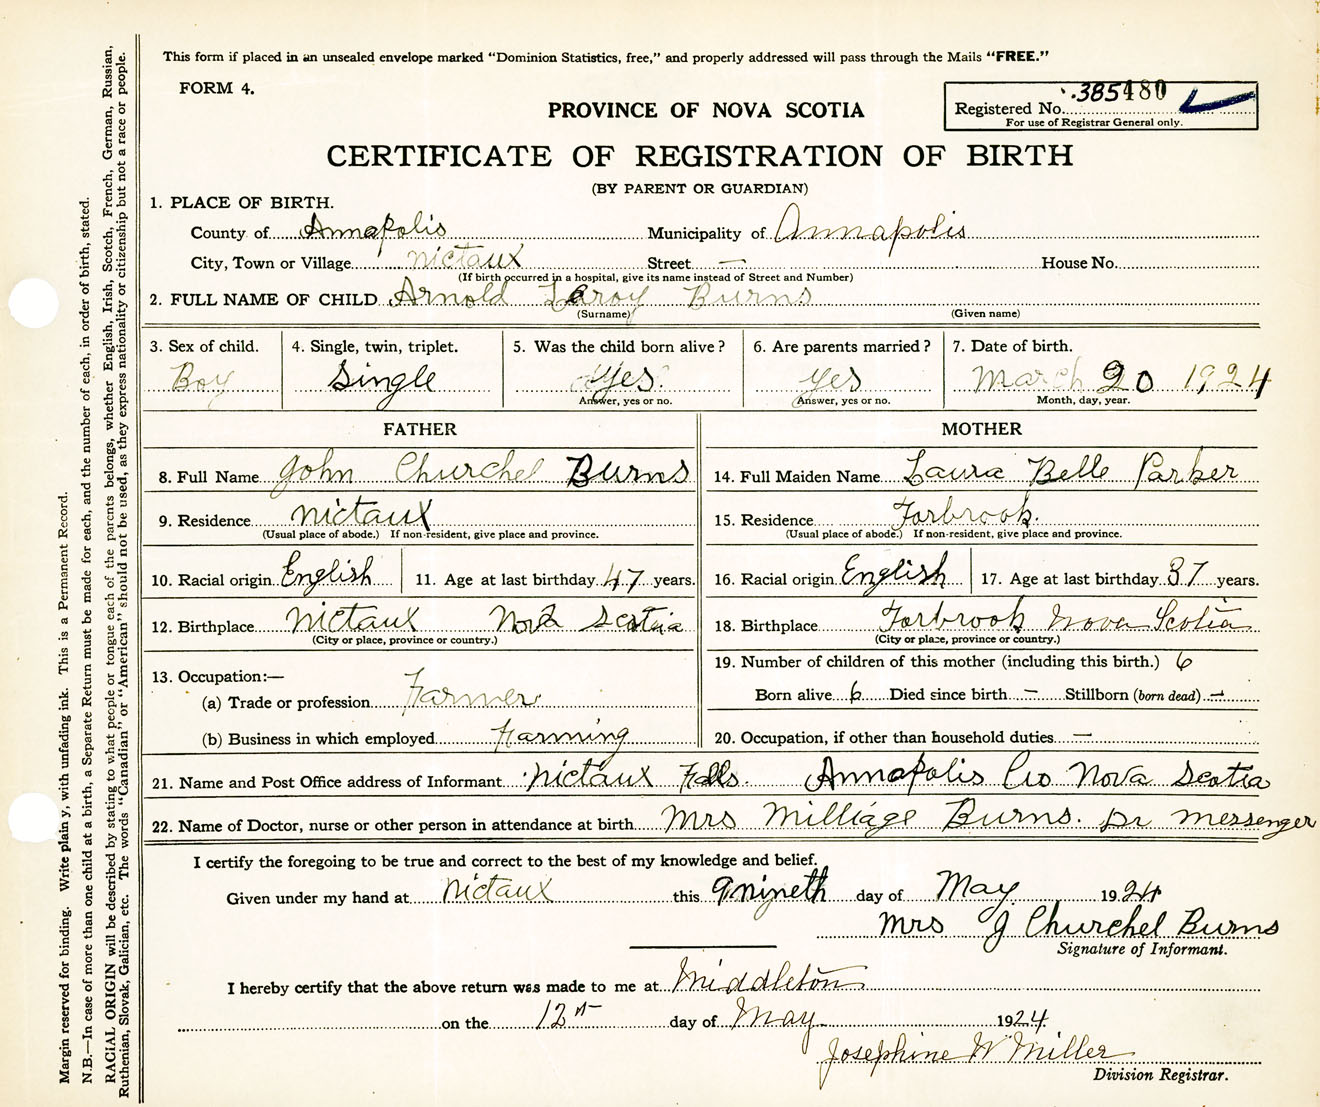 This form if placed in an unsealed envelope marked "Dominion Statistics, free," and properly addressed will pass through the Mails "FREE."
FORM 4.
385480
Registered No.
For use of Registrar General only.
PROVINCE OF NOVA SCOTIA
CERTIFICATE OF REGISTRATION OF BIRTH
(BY PARENT OR GUARDIAN)
1. PLACE OF BIRTH.
County of Annapolis Municipality of Annapolis
City, Town or Village Nictaux Street — House No.
(If birth occurred in a hospital, give its name instead of Street and Number)
2. FULL NAME OF CHILD Arnold Laroy Burns
(Surname) (Given name)
3. Sex of child. 4. Single, twin, triplet. 5. Was the child born alive? 6. Are parents married? 7. Date of birth.
Boy Single Yes. Yes March 20 1924
Answer, yes or no. Answer, yes or no. Month, day, year.
FATHER MOTHER
8. Full Name John Churchel Burns 14. Full Maiden Name Laura Belle Parker
9. Residence Nictaux 15. Residence Torbrook.
(Usual place of abode.) If non-resident, give place and province. (Usual place of abode.) If non-resident, give place and province.
10. Racial origin English 11. Age at last birthday 47 years. 16. Racial origin English 17. Age at last birthday 37 years.
12. Birthplace Nictaux Nova Scotia 18. Birthplace Torbrook Nova Scotia
(City or place, province or country.) (City or place, province or country.)
19. Number of children of this mother (including this birth.) 6
13. Occupation:—
(a) Trade or profession Farmer Born alive 6 Died since birth — Stillborn (born dead) —
(b) Business in which employed Farming 20. Occupation, if other than household duties —
21. Name and Post Office address of Informant Nictaux Falls. Annapolis Co Nova Scotia
22. Name of Doctor, nurse or other person in attendance at birth Mrs Milliage Burns. Dr Messenger
I certify the foregoing to be true and correct to the best of my knowledge and belief.
Given under my hand at Nictaux this 9 nineth day of May 1924
Mrs J Churchel Burns
Signature of Informant.
I hereby certify that the above return was made to me at Middleton
on the 12th day of May 1924.
Josephine W Miller
Division Registrar.
Margin reserved for binding. Write plainly, with unfading ink. This is a Permanent Record.
N.B.—In case of more than one child at a birth, a Separate Return must be made for each, and the number of each, in order of birth, stated.
RACIAL ORIGIN will be described by stating to what people or tongue each of the parents belongs, whether English, Irish, Scotch, French, German, Russian,
Ruthenian, Slovak, Galician, etc. The words "Canadian" or "American" should not be used, as they express nationality or citizenship but not a race or people.